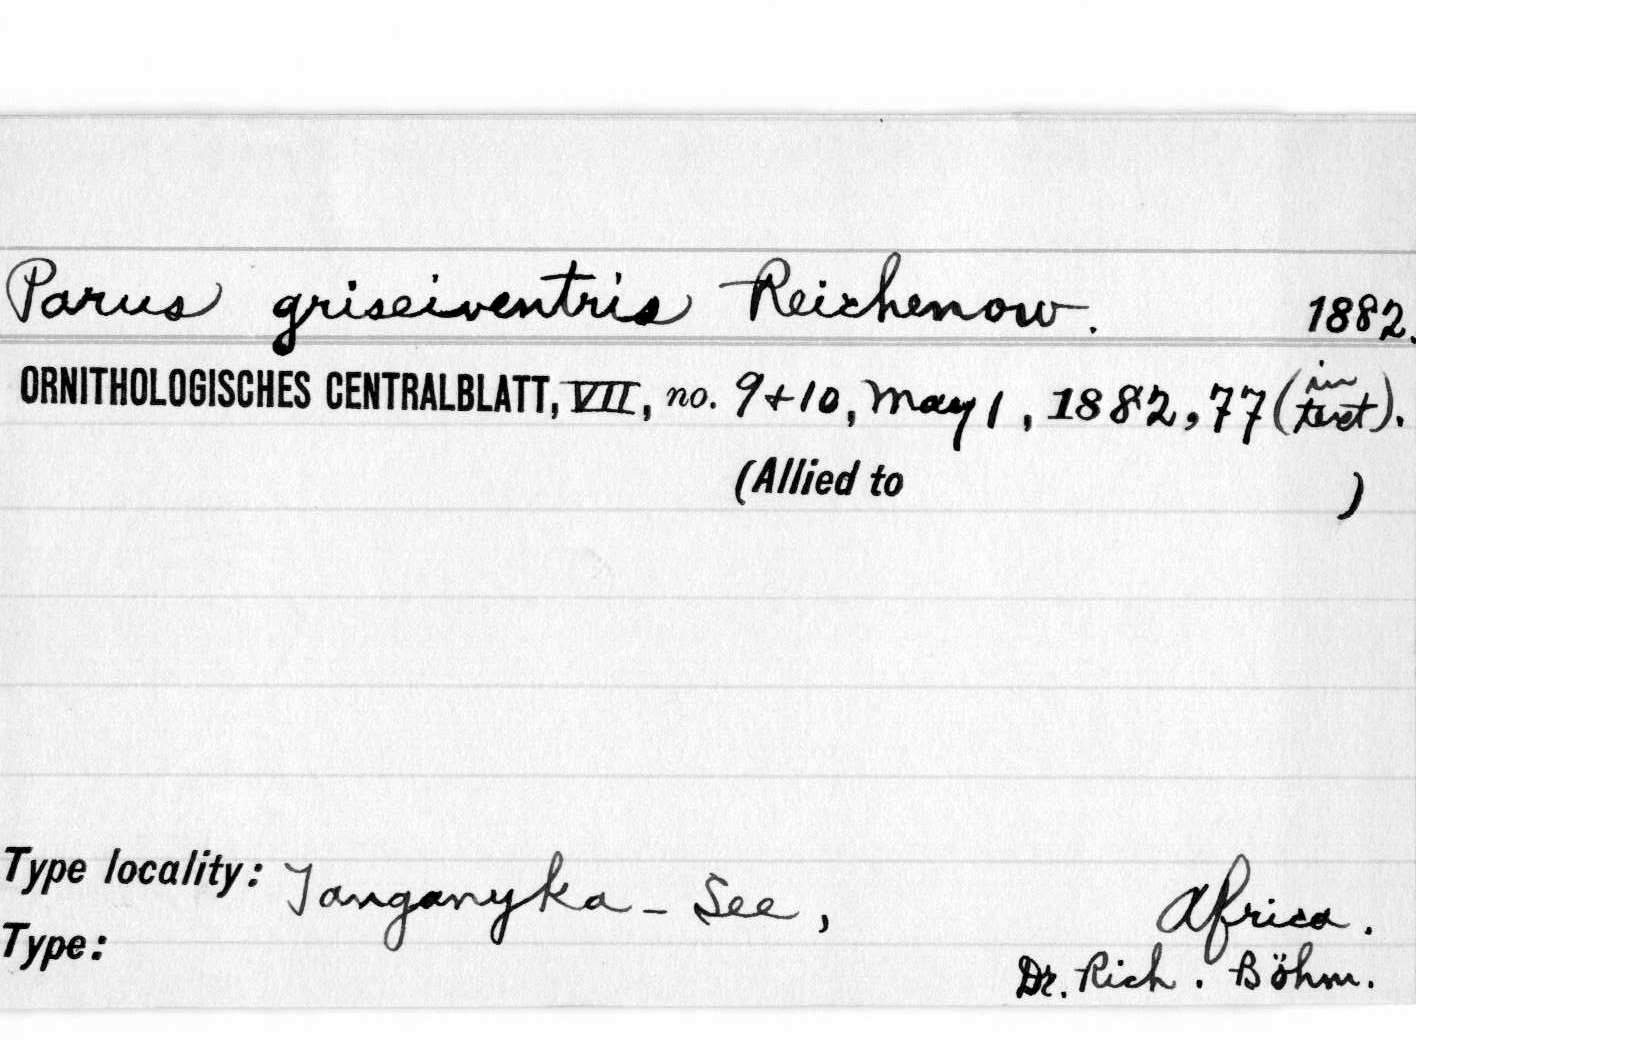 Parus griseiventris Reichenow. 1882.
ORNITHOLOGISCHES CENTRALBLATT, VII, no. 9+10, May 1, 1882, 77 (in text).
(Allied to )
Type locality: Tanganyka - See, Africa.
Type: Dr. Rich. Böhm.